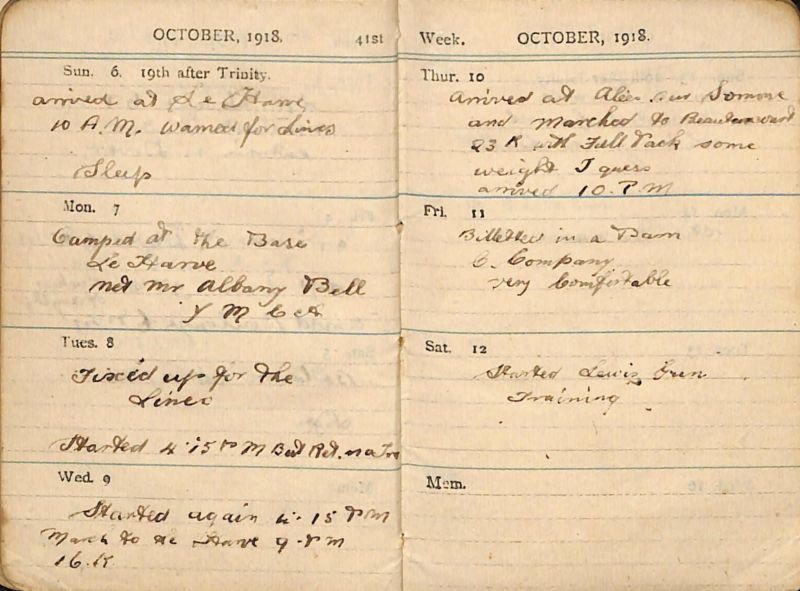 OCTOBER, 1918.
41st
Sun. 6. 19th after Trinity.
arrived at Le Harve
10 A.M. warned for Lines
Sleep
Mon. 7
Camped at the Base
Le Harve
met Mr Albany Bell
Y M C A
Tues. 8
Fixed up for the
Lines
Started 4.15 P M But Ret. no
Wed. 9
Started again 4.15 P M
March to Le Harve 9 P M
16.K.
Week.
OCTOBER, 1918.
Thur. 10
Arrived at Somme
and marched to
23 K with Full Pack some
weight I guess
arrived 10. P M
Fri. 11
Billetted in a Barn
C. Company
very Comfortable
Sat. 12
Started Lewis Gun
Training
Mem.